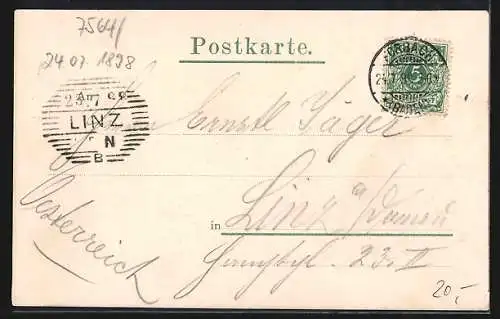 7564/
24 07. 1898
Postkarte.
5
23. 7
LINZ
N
B
Ernst Jäger
in Linz a/Donau
23. II
Oesterreich
20,-